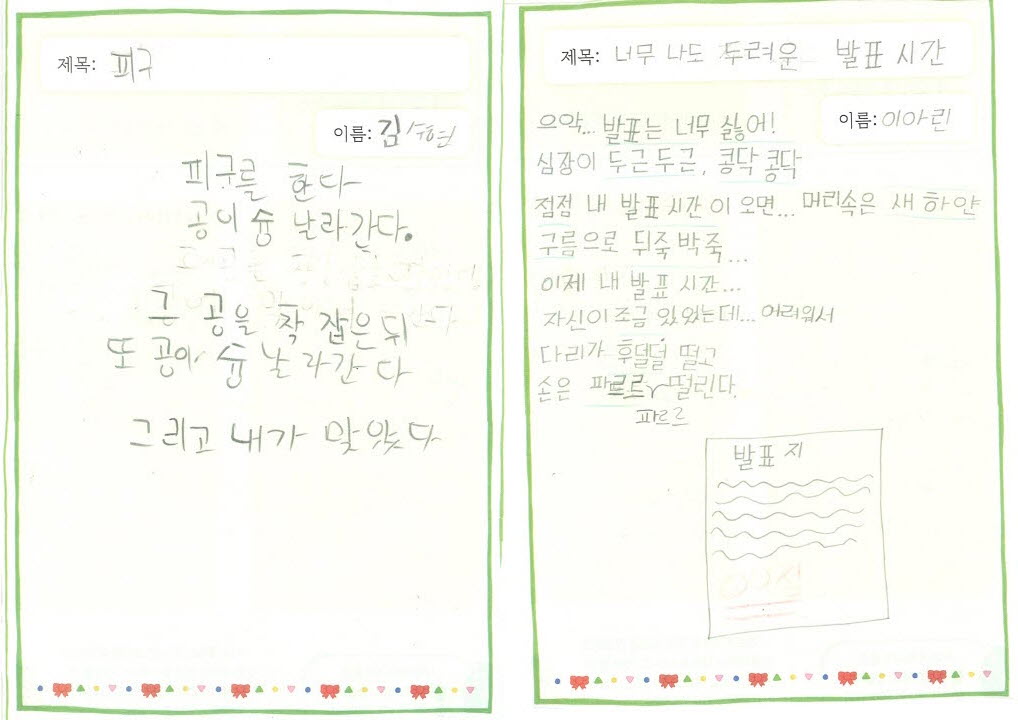 제목: 피구
이름: 김수현
피구를 한다
공이 슝 날라간다.
그 공을 착 잡은 뒤
또 공이 슝 날라간다
그리고 내가 맞았다
제목: 너무 나도 두려운 발표 시간
이름: 이아린
으악... 발표는 너무 싫어!
심장이 두근두근, 콩닥 콩닥
점점 내 발표시간이 오면... 머리속은 새하얀
구름으로 뒤죽박죽...
이제 내 발표 시간...
자신이 조금 있있는데... 어려워서
다리가 후덜덜 떨고
손은 파르르 떨린다.
파르르
발표 지